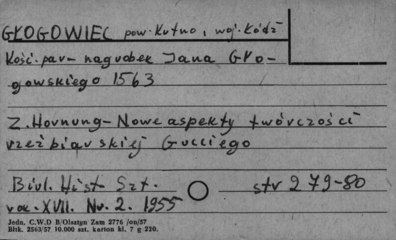 GŁOGOWIEC pow. Kutno, woj. Łódź
Kość. par– nagrobek Jana Gło-
gowskiego 1563
Z. Hornung– Nowe aspekty twórczości
rzeźbiarskiej Gucciego
Biul. Hist– Szt. str 279–80
rok– XVII. Nr. 2. 1955
Jedn. C.W.D B/Olsztyn Zam 2776 /00/57
Bltk. 2563/57 10.000 szt. karton kl. 7 g 220.